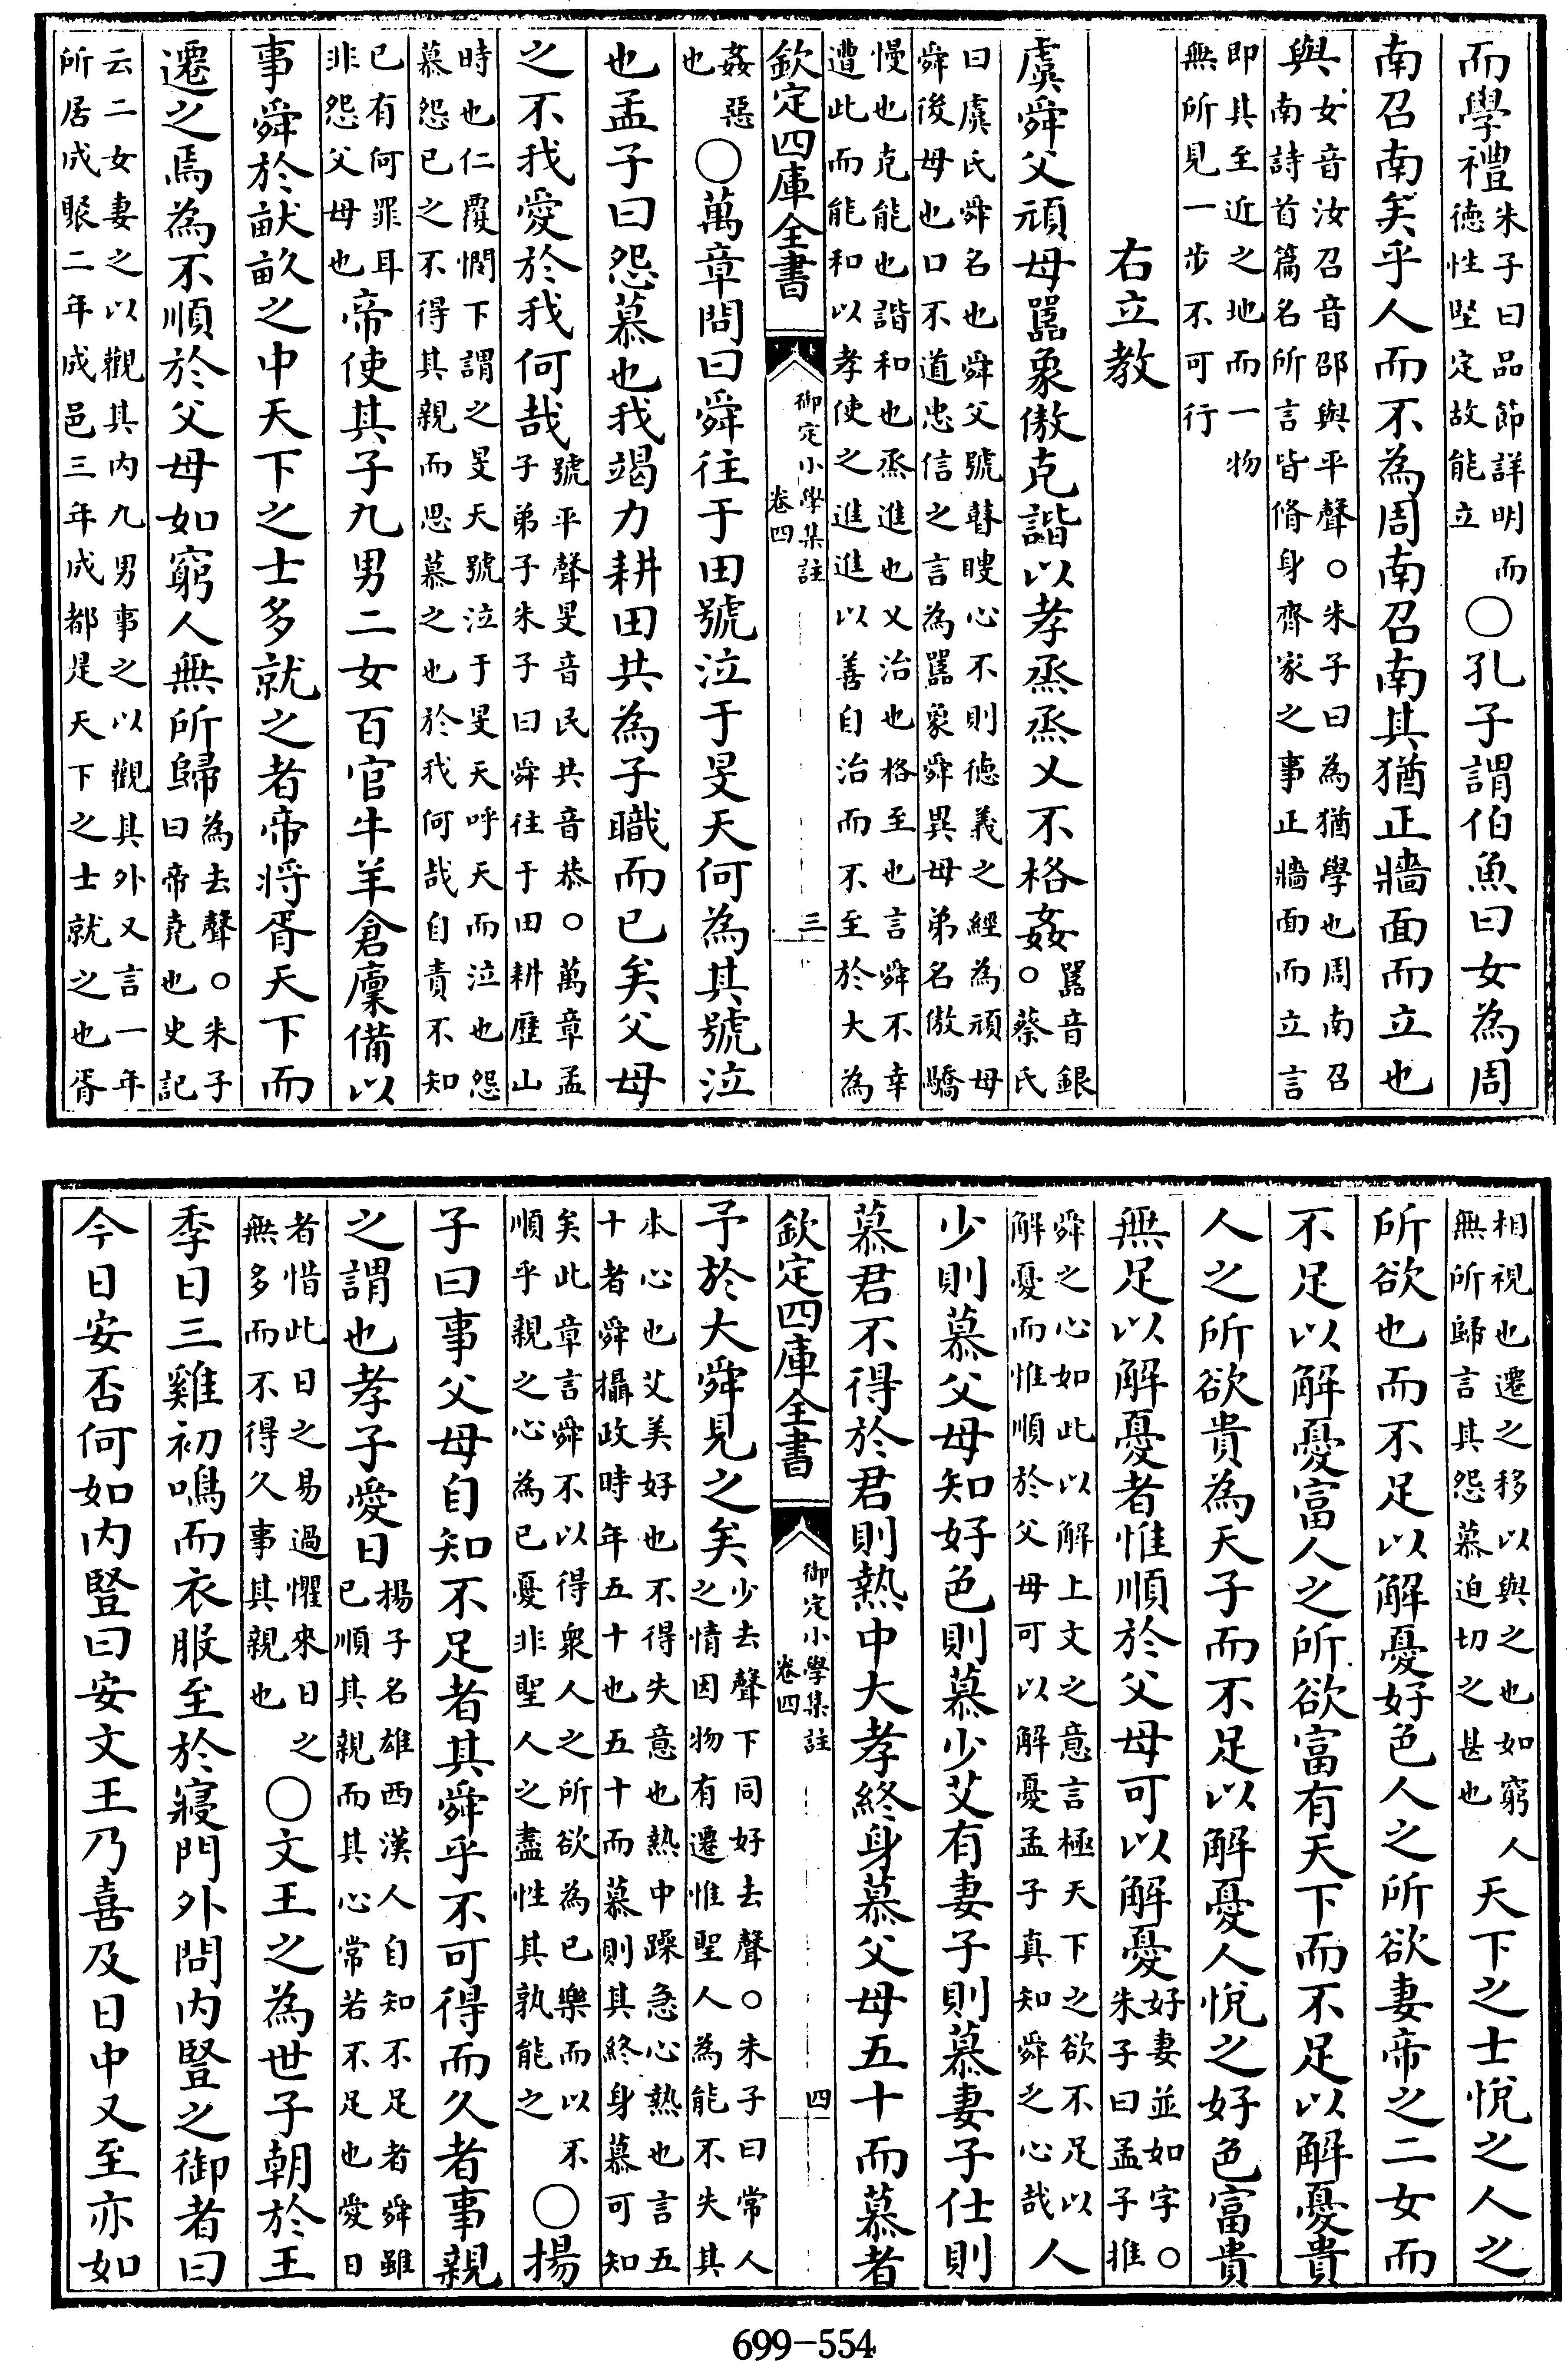 而學禮朱子曰品節詳明而德性堅定故能立○孔子謂伯魚曰女為周
南召南矣乎人而不為周南召南其猶正牆面而立也
與女音汝召音邵與平聲○朱子曰為猶學也周南召
南詩首篇名所言皆脩身齊家之事正牆面而立言
即其至近之地而一物
無所見一步不可行
右立教
虞舜父頑母嚚象傲克諧以孝烝烝乂不格姦嚚音銀○蔡氏
曰虞氏舜名也舜父號瞽瞍心不則德義之經為頑母
舜後母也口不道忠信之言為嚚象舜異母弟名傲驕
慢也克能也諧和也烝進也乂治也格至也言舜不幸
遭此而能和以孝使之進進以善自治而不至於大為
欽定四庫全書
御定小學集註
卷四
三
姦惡也○萬章問曰舜往于田號泣于旻天何為其號泣
也孟子曰怨慕也我竭力耕田共為子職而已矣父母
之不我愛於我何哉號平聲旻音民共音恭○萬章孟
子弟子朱子曰舜往于田耕歷山
時也仁覆憫下謂之旻天號泣于旻天呼天而泣也怨
慕怨已之不得其親而思慕之也於我何哉自責不知
已有何罪耳非怨父母也帝使其子九男二女百官牛羊倉廩備以
事舜於畎畝之中天下之士多就之者帝將胥天下而
遷之焉為不順於父母如窮人無所歸為去聲○朱子
曰帝堯也史記
云二女妻之以觀其内九男事之以觀其外又言一年
所居成聚二年成邑三年成都是天下之士就之也胥
相視也遷之移以與之也如窮人
無所歸言其怨慕迫切之甚也天下之士悅之人之
所欲也而不足以解憂好色人之所欲妻帝之二女而
不足以解憂富人之所欲富有天下而不足以解憂貴
人之所欲貴為天子而不足以解憂人悅之好色富貴
無足以解憂者惟順於父母可以解憂好妻並如字○
朱子曰孟子推
舜之心如此以解上文之意言極天下之欲不足以
解憂而惟順於父母可以解憂孟子真知舜之心哉人
少則慕父母知好色則慕少艾有妻子則慕妻子仕則
慕君不得於君則熱中大孝終身慕父母五十而慕者
欽定四庫全書
御定小學集註
卷四
四
予於大舜見之矣少去聲下同好去聲○朱子曰常人
之情因物有遷惟聖人為能不失其
本心也艾美好也不得失意也熱中躁急心熱也言五
十者舜攝政時年五十也五十而慕則其終身慕可知
矣此章言舜不以得衆人之所欲為已樂而以不
順乎親之心為已憂非聖人之盡性其孰能之○揚
子曰事父母自知不足者其舜乎不可得而久者事親
之謂也孝子愛日揚子名雄西漢人自知不足者舜雖
已順其親而其心常若不足也愛日
者惜此日之易過懼來日之
無多而不得久事其親也○文王之為世子朝於王
季日三雞初鳴而衣服至於寢門外問内豎之御者曰
今日安否何如内豎曰安文王乃喜及日中又至亦如
699-554